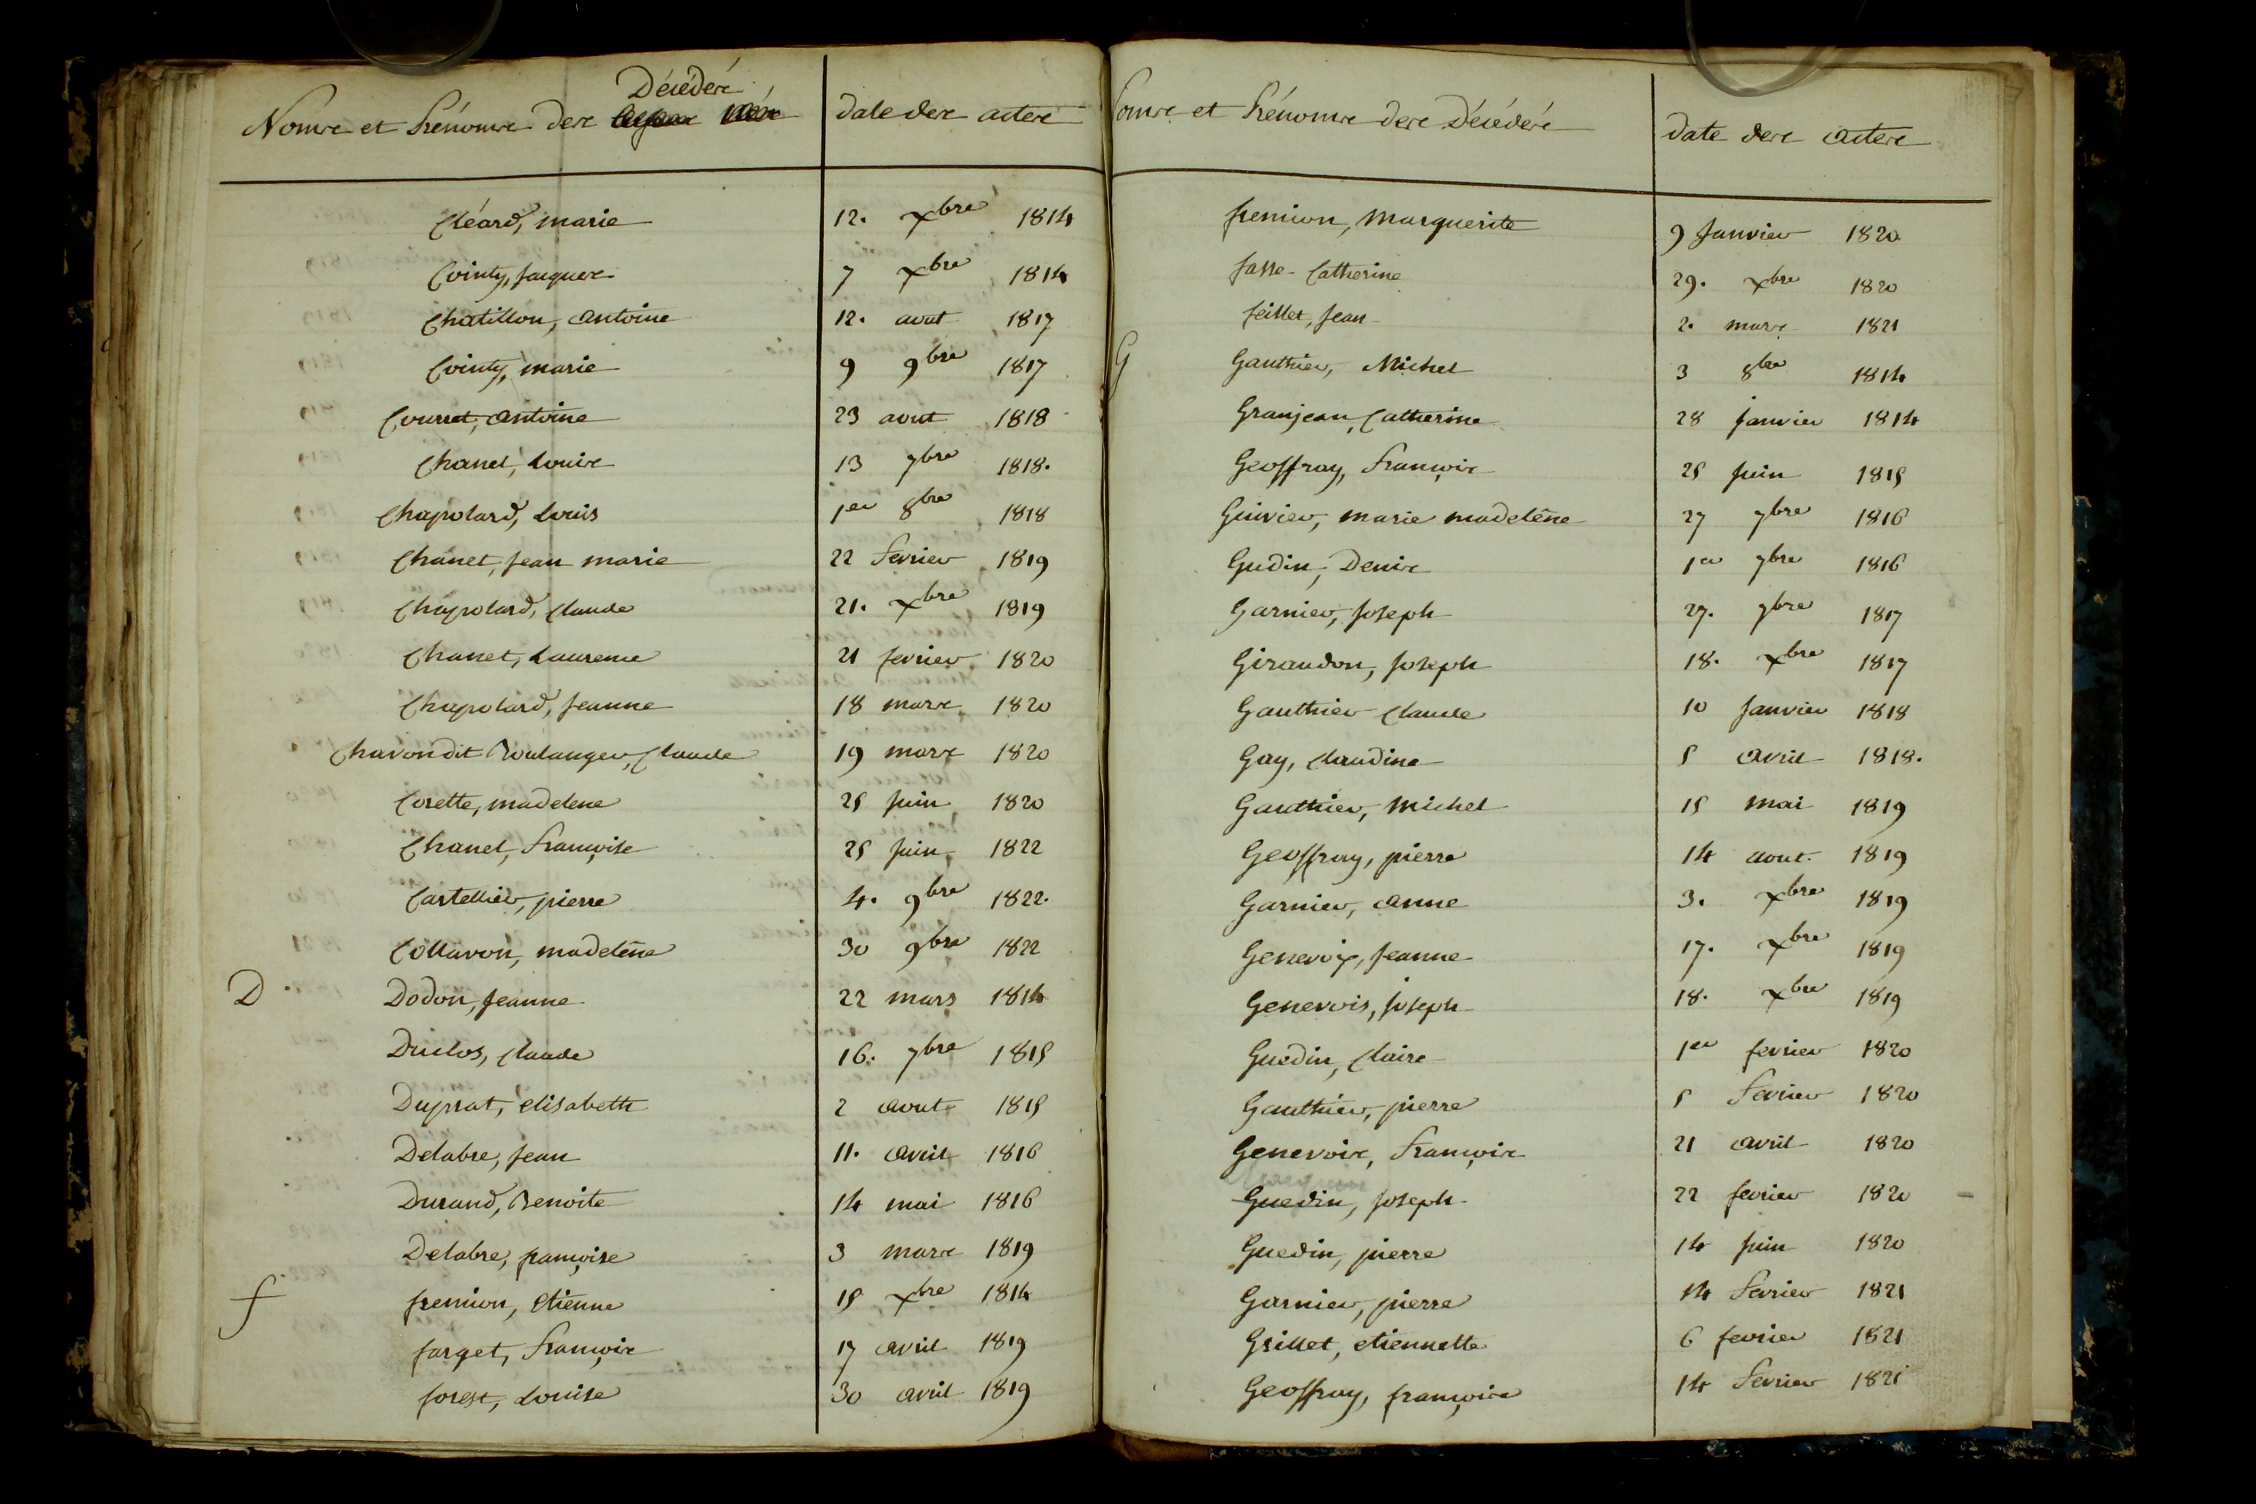 Décédés
Noms et Prénoms des
date des actes
Cléard, marie 12. xbre 1814
Cointy, jacques 7 xbre 1814
Chatillon, antoine 12. aout 1817
Cointy, marie 9 9bre 1817
Courret, antoine 23 aout 1818
Chanel, Louise 13 7bre 1818.
Chapolard, Louis 1er 8bre 1818
Chanet, jean marie 22 fevrier 1819
Chapolard, Claude 21. xbre 1819
Chanet, Laurence 21 fevrier 1820
Chapolard, jeanne 18 mars 1820
Chavon dit Boulanger, Claude 19 mars 1820
Corette, madelene 25 juin 1820
Chanel, Françoise 25 juin 1822
Cartellier, pierre 4. 9bre 1822.
Collavon, madelène 30 9bre 1822
D
Dodon, jeanne 22 mars 1814
Duclos, Claude 16. 7bre 1815
Duprat, elisabeth 2 aout 1815
Delabre, jean 11. avril 1816
Durand, Benoite 14 mai 1816
Delabre, françoise 3 mars 1819
f
fremion, etienne 15 xbre 1814
farget, François 17 avril 1819
forest, Louise 30 avril 1819
Noms et Prénoms des Décédés
date des actes
fremion, Marguerite 9 Janvier 1820
fasse Catherine 29. xbre 1820
feillet, jean 2. mars 1821
G
Gauthier, Michel 3 8bre 1814
Granjean, Catherine 28 janvier 1814
Geoffray, François 25 juin 1815
Guivier, marie madelène 27 7bre 1816
Gudin, Denis 1er 7bre 1816
Garnier, Joseph 27. 7bre 1817
Giraudon, Joseph 18. xbre 1817
Gauthier Claude 10 Janvier 1818
Gay, Claudine 5 avril 1818.
Gauthier, Michel 15 mai 1819
Geoffray, pierre 14 aout. 1819
Garnier, anne 3. xbre 1819
Genevoix, jeanne 17. xbre 1819
Genevois, joseph 18. xbre 1819
Guedin, Claire 1er fevrier 1820
Gauthier, pierre 5 fevrier 1820
Genevois, François 21 avril 1820
Guedin, joseph 22 fevrier 1820
Guedin, pierre 14 juin 1820
Garnier, pierre 14 fevrier 1821
Grillet, etiennette 6 fevrier 1821
Geoffray, françois 14 fevrier 1821